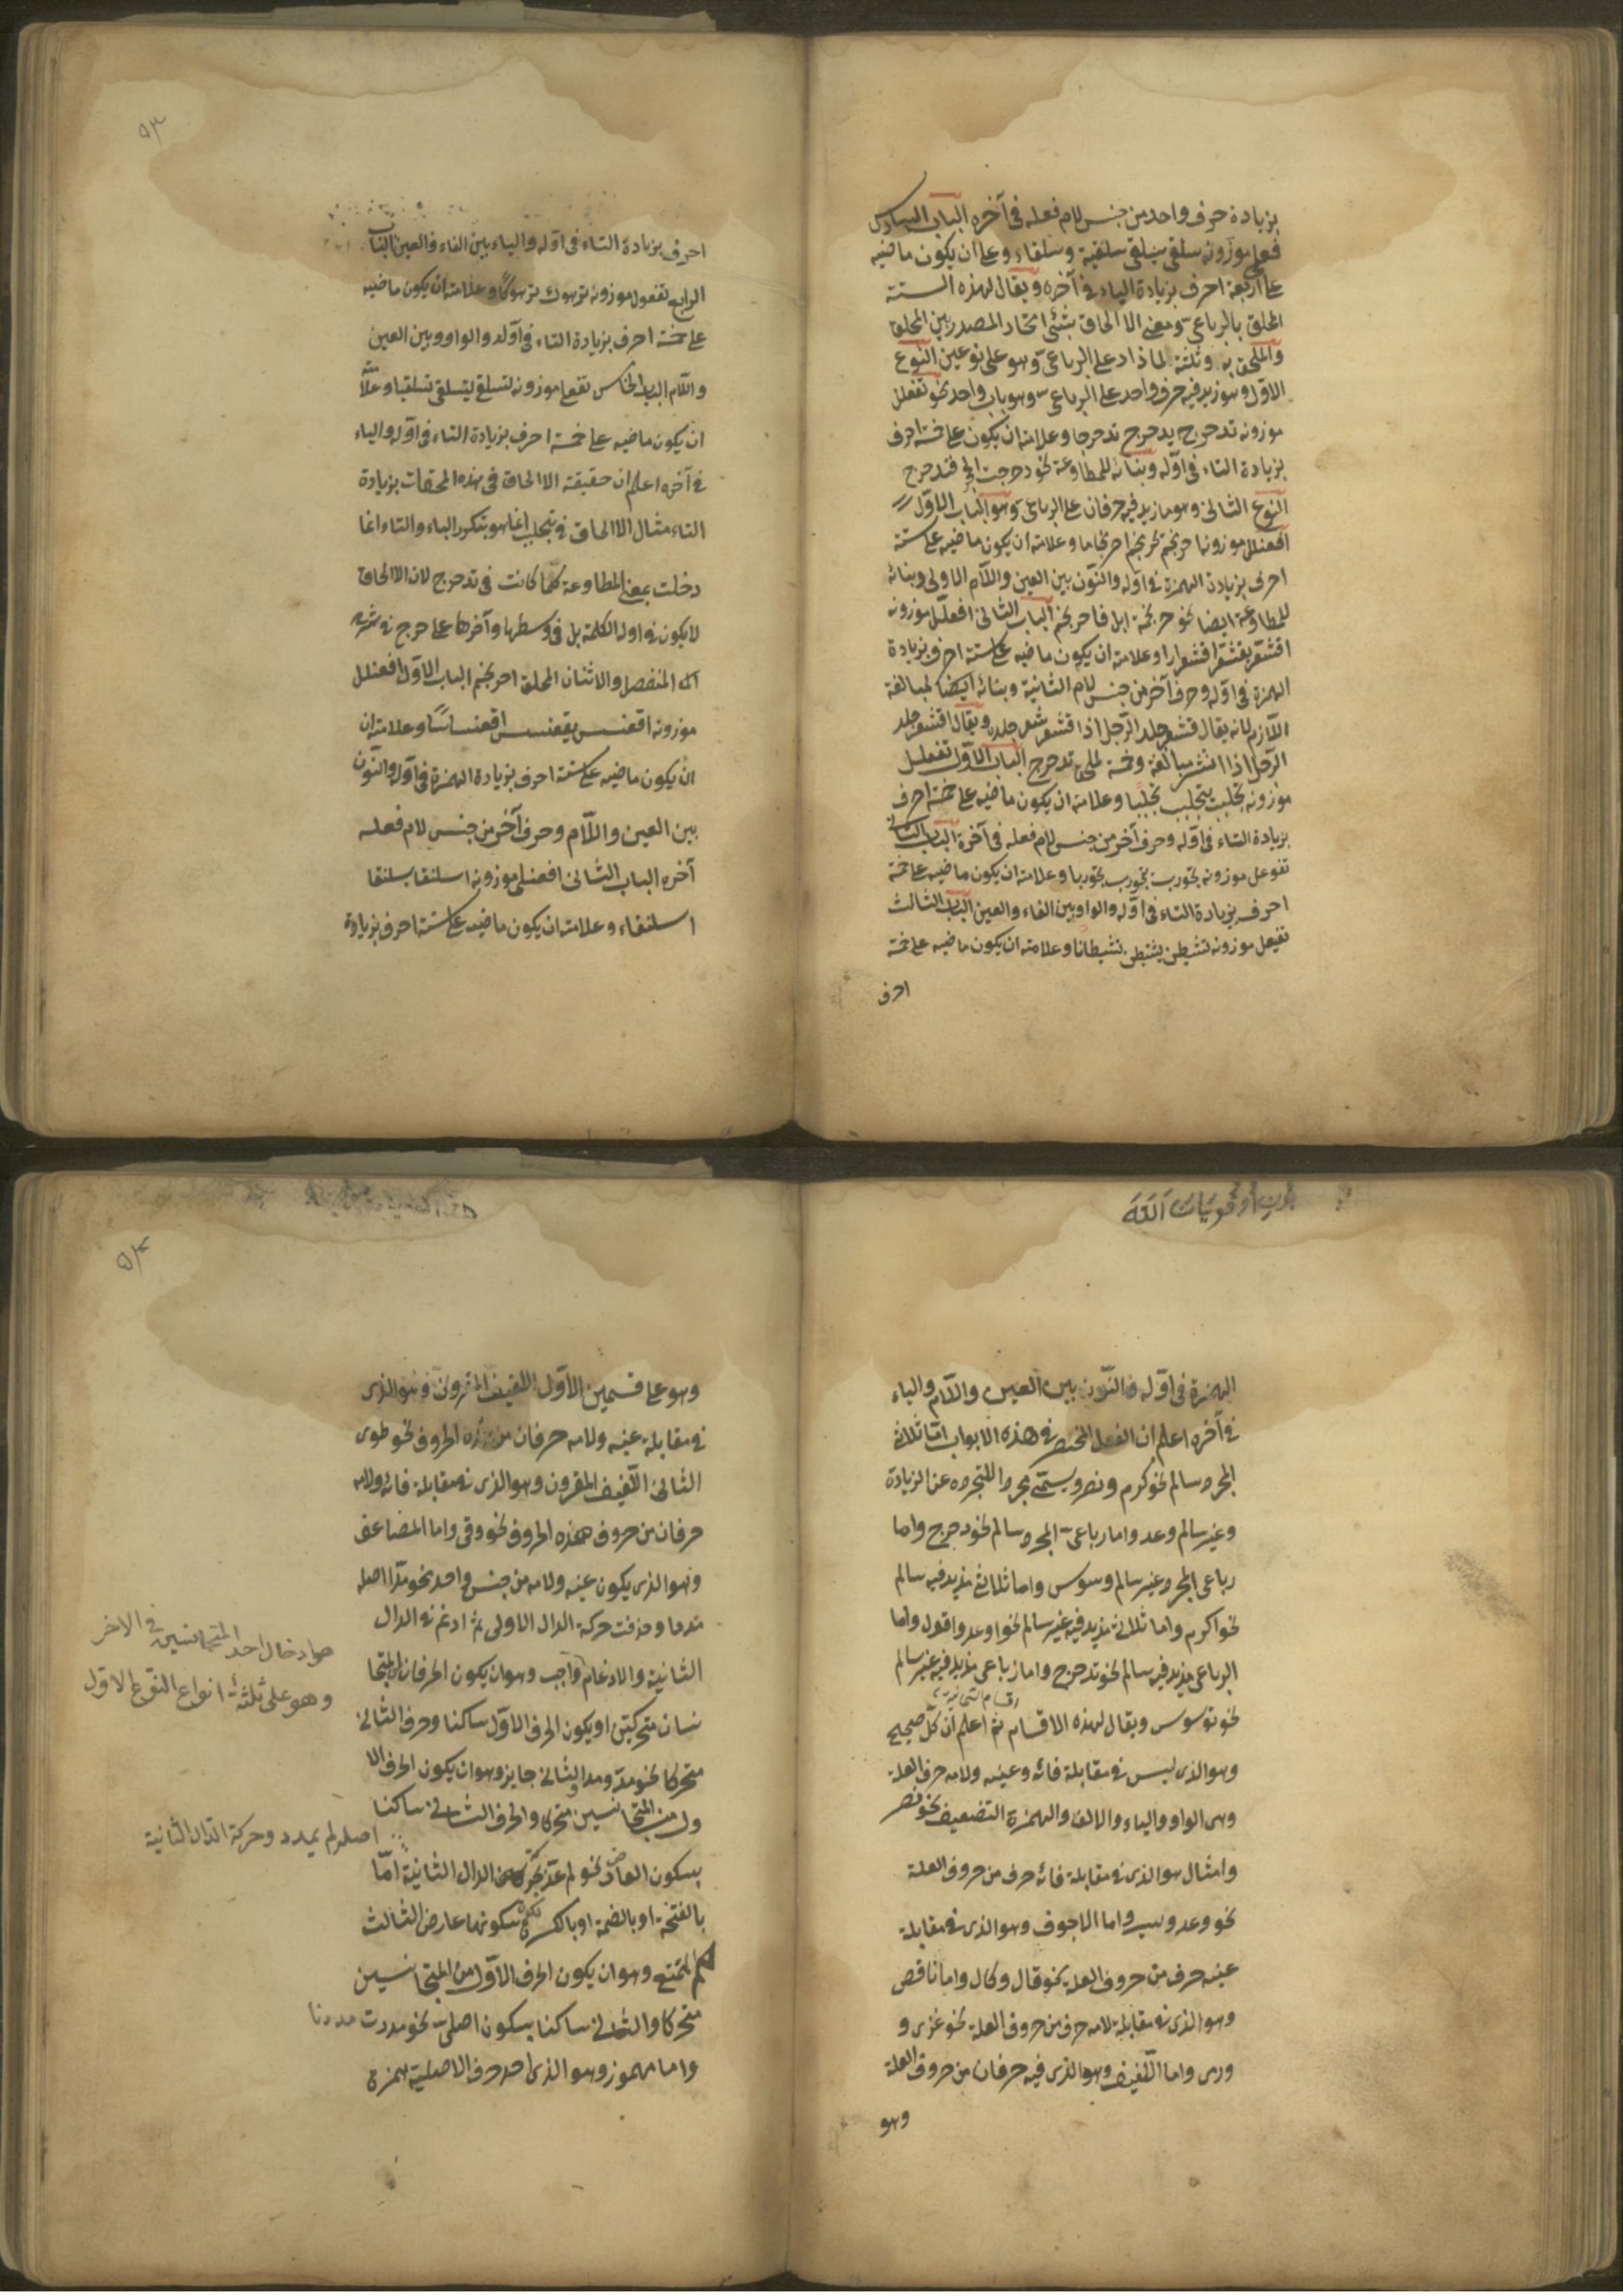 بزيادة حرف واحد من جنس لام فعله في آخره الباب السادس
فعلى موزونه سلقى يسلقى سلقية وسلقاء وعلامته ان يكون ماضيه
على اربعة احرف بزيادة الياء في آخره ويقال لهذه الستة
الملحق بالرباعى ومعنى الالحاق بشئ اتحاد المصدرين الملحق
والملحق به وثلثة لما زاد على الرباعى وهو على نوعين النوع
الاول وهو زيد فيه حرف واحد على الرباعى وهو باب واحد نحو تفعلل
موزونه تدحرج يدحرج تدحرجا وعلامته ان يكون على خمسة احرف
بزيادة التاء في اوله وبنائه للمطاوعة نحو دحرجت الحجر فتدحرج
النوع الثانى وهو ما زيد فيه حرفان على الرباعى وهو الباب الاول
افعنلل موزونه احرنجم يحرنجم احرنجاما وعلامته ان يكون ماضيه على ستة
احرف بزيادة الهمزة في اوله والنون بين العين واللام الاولى وبنائه
للمطاوعة ايضا نحو حرجمة ابل فاحرنجم الباب الثانى افعلل موزونه
اقشعر يقشعر اقشعرارا وعلامته ان يكون ماضيه على ستة احرف بزيادة
الهمزة في اوله وحرف آخر من جنس لام الثانية وبنائه ايضا لمبالغة
اللازم لانه يقال قشعر جلد الرجل اذا اقشعر شعر جلده ويقال اقشعر جلد
الرجل اذا انتشر مبالغة وخمسة لملحق تدحرج الباب الاول تفعلل
موزونه تجلبب يتجلبب تجلببا وعلامته ان يكون ماضيه على خمسة احرف
بزيادة التاء في اوله وحرف آخر من جنس لام فعله في آخره الباب الثانى
تفوعل موزونه تجورب يتجورب تجوربا وعلامته ان يكون ماضيه على خمسة
احرف بزيادة التاء في اوله والواو بين الفاء والعين الباب الثالث
تفيعل موزونه تشيطن يتشيطن تشيطانا وعلامته ان يكون ماضيه على خمسة
احرف
٥٣
احرف بزيادة التاء في اوله والياء بين الفاء والعين الباب
الرابع تفعول موزونه ترهوك يترهوك وعلامته ان يكون ماضيه
على خمسة احرف بزيادة التاء في اوله والواو وبين العين
واللام الباب الخامس تفعلى موزونه تسلقى يتسلقى تسلقيا وعلامته
ان يكون ماضيه على خمسة احرف بزيادة التاء في اوله والياء
في آخره اعلم ان حقيقة الالحاق في هذه الملحقات بزيادة
التاء مثال الالحاق في تجلبب انما هو بتكرر الباء والتاء انما
دخلت بمعنى المطاوعة كما كانت في تدحرج لان الالحاق
لا يكون في اول الكلمة بل في وسطها وآخرها على
المفصل والاثنان لملحق احرنجم الباب الاول افعنلل
موزونه اقعنسس يقعنسس اقعنساسا وعلامته ان
ان يكون ماضيه على ستة احرف بزيادة الهمزة في اوله والنون
بين العين واللام وحرف آخر من جنس لام فعله
آخره الباب الثانى افعنلى موزونه اسلنقا يسلنقا
اسلنقاء وعلامته ان يكون ماضيه على ستة احرف بزيادة
الهمزة في اوله والنون بين العين واللام والياء
في آخره اعلم ان الفعل المنحصر في هذه الابواب اما ثلاثى
المجرد سالم نحو كرم ونصر ويسمى مجردا للتجرده عن الزيادة
وغير سالم وعد واما رباعى المجرد سالم نحو دحرج واما
رباعى المجرد غير سالم وسوس واما ثلاثى مزيد فيه سالم
نحو اكرم واما ثلاثى مزيد فيه غير سالم نحو اوعد واقول واما
الرباعى مزيد فيه سالم نحو تدحرج واما رباعى مزيد فيه غير سالم
نحو توسوس ويقال لهذه الاقسام ثم اعلم ان كل صحيح
وهو الذى ليس في مقابلة فائه وعينه ولامه حرف العلة
وهى الواو والياء والالف والهمزة التضعيف نحو نصر
وامثال هو الذى في مقابلة فائه حرف من حروف العلة
نحو وعد ويسر واما الاجوف وهو الذى في مقابلة
عينه حرف من حروف العلة نحو قال وكال واما ناقص
وهو الذى في مقابلة لامه حرف من حروف العلة نحو غزى و
ورمى واما اللفيف وهو الذى فيه حرفان من حروف العلة
وهو
٥٤
وهو على قسمين الاول اللفيف المقرون وهو الذى
في مقابلة عينه ولامه حرفان من هذه الحروف نحو طوى
الثانى اللفيف المقرون وهو الذى في مقابلة فائه ولامه
حرفان من حروف هذه الحروف نحو وقى واما المضاعف
وهو الذى يكون عينه ولامه من جنس واحد نحو مد اصله
مدد وحذفت حركة الدال الاولى ثم ادغم في الدال
الثانية والادغام واجب وهو ان يكون الحرفان المتجا
نسان متحركتين او يكون الحرف الاول ساكنا وحرف الثانى
متحركا نحو مد ومدا والثانى جايز وهو ان يكون الحرف الا
ول من المتجانسين متحركا والحرف الثانى ساكنا
بسكون العارض نحو لم يمد بحركة الدال الثانية اما
بالفتحة او بالضمة او بالكسرة سكونها عارض الثالث
الممتنع وهو ان يكون الحرف الاول من المتجانسين
متحركا والثانى ساكنا بسكون اصلى نحو مددت مددنا
واما مهموز وهو الذى احد حرف الاصلية همزة
هو ادخال احد المتجانسين في الاخر
وهو على ثلثة انواع النوع الاول
اصله لم يمدد وحركة الدال الثانية